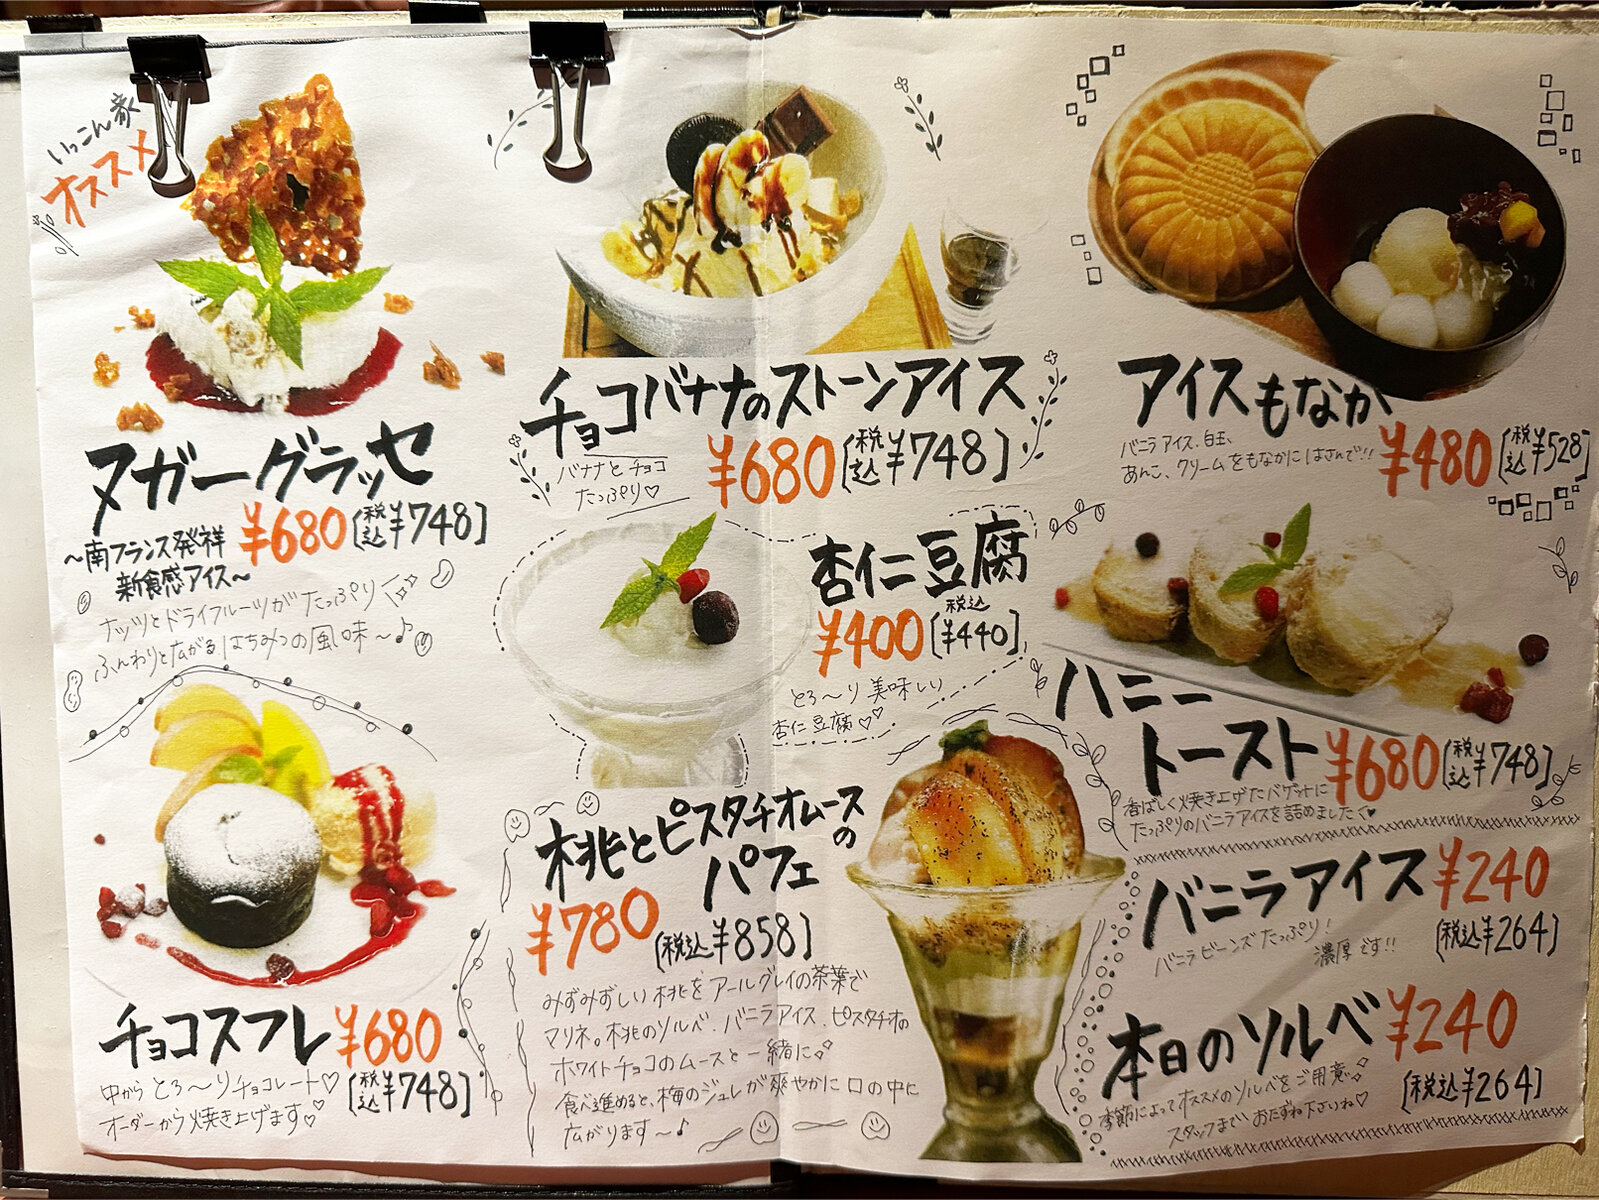 いっこん家
オススメ
ヌガーグラッセ
¥680(税込¥748)
～南フランス発祥
新食感アイス～
ナッツとドライフルーツがたっぷり
ふんわりと広がるはちみつの風味～♪
チョコバナナのストーンアイス
¥680(税込¥748)
バナナとチョコ
たっぷり♡
アイスもなか
¥480(税込¥528)
バニラアイス、白玉、
あんこ、クリームをもなかにはさんで!!
杏仁豆腐
¥400(税込¥440)
とろ～り美味しい
杏仁豆腐♡♡
ハニー
トースト
¥680(税込¥748)
香ばしく焼き上げたバゲットに
たっぷりのバニラアイスを詰めました♡
チョコスフレ
¥680(税込¥748)
中からとろ～りチョコレート♡
オーダーから焼き上げます♡
桃とピスタチオムースの
パフェ
¥780(税込¥858)
みずみずしい桃をアールグレイの茶葉で
マリネ。桃のソルベ、バニラアイス、ピスタチオの
ホワイトチョコのムースと一緒に
食べ進めると、梅のジュレが爽やかに口の中に
広がります～♪
バニラアイス
¥240
(税込¥264)
バニラビーンズたっぷり!
濃厚です!!
本日のソルベ
¥240
(税込¥264)
季節によってオススメのソルベをご用意
スタッフまでおたずね下さいね♡